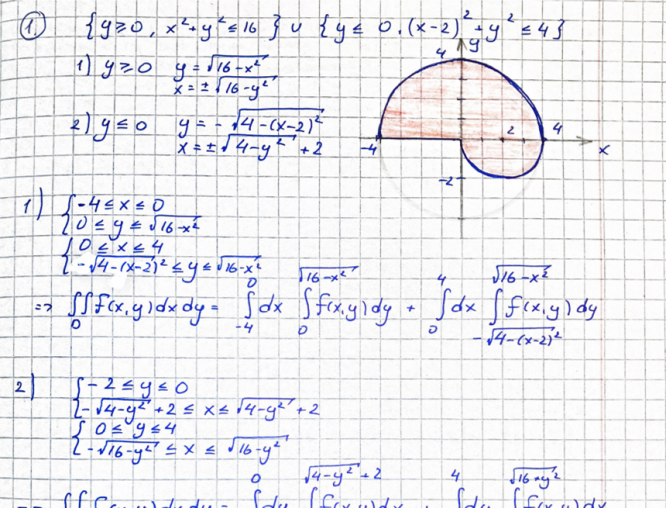 1. {y ≥ 0, x² + y² ≤ 16} ∪ {y ≤ 0, (x-2)² + y² ≤ 4}
1) y ≥ 0 y = √(16-x²)
x = ±√(16-y²)
2) y ≤ 0 y = -√(4-(x-2)²)
x = ±√(4-y²) + 2
y
4
-4
2
4
x
-2
1) { -4 ≤ x ≤ 0
0 ≤ y ≤ √(16-x²)
{ 0 ≤ x ≤ 4
-√(4-(x-2)²) ≤ y ≤ √(16-x²)
=> ∬_0 f(x,y) dx dy = ∫_{-4}^{0} dx ∫_{0}^{√(16-x²)} f(x,y) dy + ∫_{0}^{4} dx ∫_{-√(4-(x-2)²)}^{√(16-x²)} f(x,y) dy
2) { -2 ≤ y ≤ 0
-√(4-y²) + 2 ≤ x ≤ √(4-y²) + 2
{ 0 ≤ y ≤ 4
-√(16-y²) ≤ x ≤ √(16-y²)
0 √(4-y²) + 2 4 √(16+y²)
=> ∬ f(x,y) dx dy = ∫ dy ∫ f(x,y) dx + ∫ dy ∫ f(x,y) dx